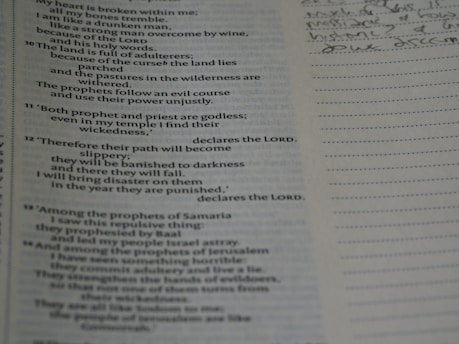 My heart is broken within me;
all my bones tremble.
I am like a drunken man,
like a strong man overcome by wine,
because of the LORD
and his holy words.
10 The land is full of adulterers;
because of the curse the land lies
parched
and the pastures in the wilderness are
withered.
The prophets follow an evil course
and use their power unjustly.
11 'Both prophet and priest are godless;
even in my temple I find their
wickedness,'
declares the LORD.
12 'Therefore their path will become
slippery;
they will be banished to darkness
and there they will fall.
I will bring disaster on them
in the year they are punished,'
declares the LORD.
13 'Among the prophets of Samaria
I saw this repulsive thing:
they prophesied by Baal
and led my people Israel astray.
14 And among the prophets of Jerusalem
I have seen something horrible:
they commit adultery and live a lie.
They strengthen the hands of evildoers,
so that not one of them turns from
their wickedness.
They are all like Sodom to me;
the people of Jerusalem are like
Gomorrah.'